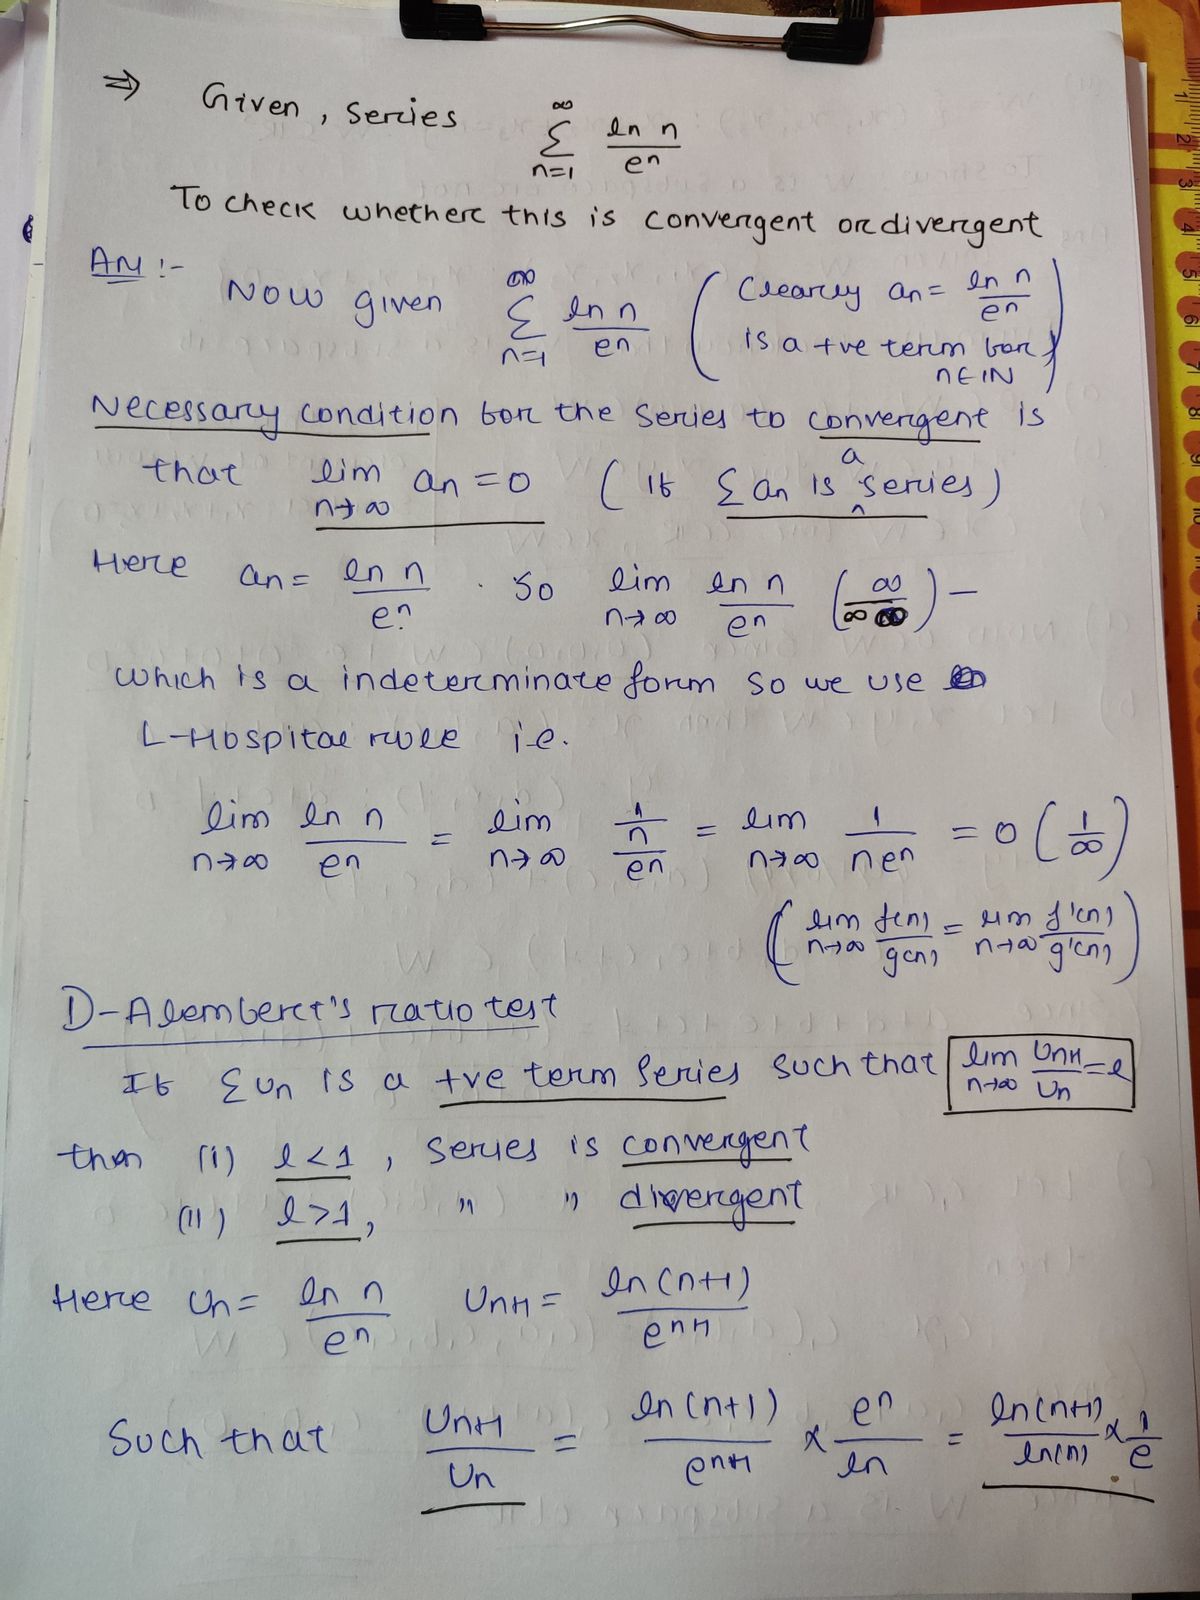 ⇒ Given, series ∞ Σ n=1 ln n / e^n
To check whether this is convergent or divergent
Ans :- Now given ∞ Σ n=1 ln n / e^n ( Clearly an = ln n / e^n
is a +ve term for
n∈IN )
Necessary condition for the series to convergent is
that lim n→∞ an = 0 ( If Σ an is a series )
Here an = ln n / e^n . So lim n→∞ ln n / e^n ( ∞ / ∞ ) –
which is a indeterminate form so we use
L-Hospital rule i.e.
lim n→∞ ln n / e^n = lim n→∞ 1/n / e^n = lim n→∞ 1 / ne^n = 0 ( 1/∞ )
( lim n→∞ f(n) / g(n) = lim n→∞ f'(n) / g'(n) )
D-Alembert's ratio test
If Σ Un is a +ve term series such that lim n→∞ Un+1 / Un = l
then (i) l < 1 , series is convergent
(ii) l > 1 , " " divergent
Here Un = ln n / e^n Un+1 = ln (n+1) / e^n+1
Such that Un+1 / Un = ln (n+1) / e^n+1 × e^n / ln = ln(n+1) / ln(n) × 1/e